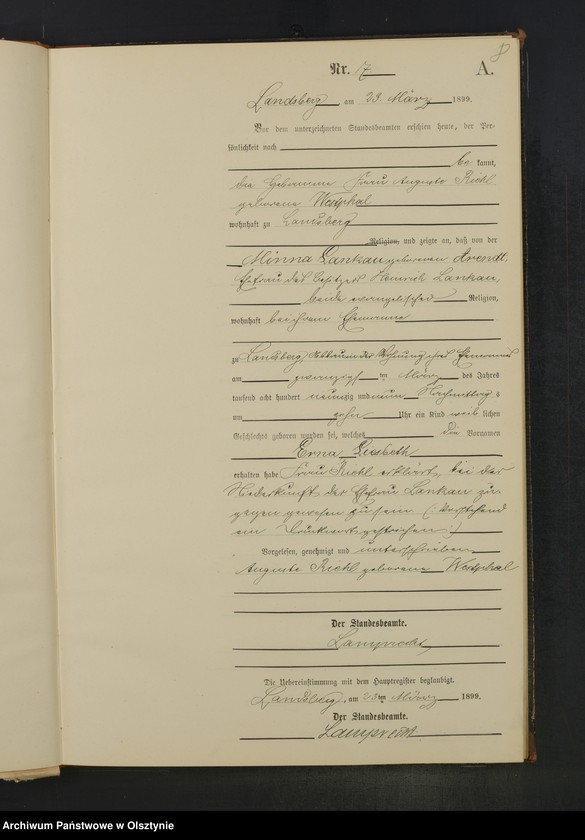 8
Nr. 7 A.
Landsberg am 23. März 1899.
Vor dem unterzeichneten Standesbeamten erschien heute, der Per-
sönlichkeit nach
be kannt,
die Hebamme Frau Auguste Riehl
geborene Westphal
wohnhaft zu Landsberg
Religion, und zeigte an, daß von der
Minna Lankau geborenen Arendt,
Ehefrau des Besitzers Heinrich Lankau,
beide evangelischer Religion,
wohnhaft bei ihrem Ehemanne
zu Landsberg, in der Wohnung ihres Ehemannes
am zwanzigsten März des Jahres
tausend acht hundert neunzig und neun Nachmittags
um zehn Uhr ein Kind weib lichen
Geschlechts geboren worden sei, welches die Vornamen
Erna Liesbeth
erhalten habe Frau Riehl erklärt, bei der
Niederkunft der Ehefrau Lankau zu-
gegen gewesen zu sein (: Vorstehend
ein Druckwort gestrichen :)
Vorgelesen, genehmigt und unterschrieben
Auguste Riehl geborene Westphal
Der Standesbeamte.
Lamprecht
Die Uebereinstimmung mit dem Hauptregister beglaubigt.
Landsberg, am 23ten März 1899.
Der Standesbeamte.
Lamprecht
Archiwum Państwowe w Olsztynie